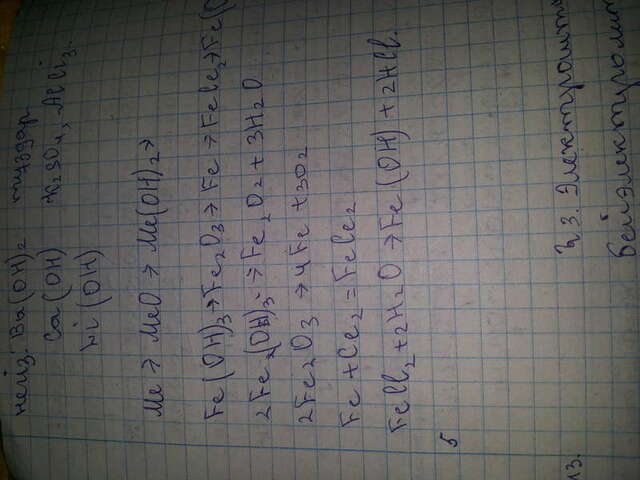 негіз: Ba(OH)2 туздар
Ca(OH) K2SO4, AlCl3.
Li(OH)
Me → MeO → Me(OH)2 →
Fe(OH)3 → Fe2O3 → Fe → FeCl2 → Fe(O
2Fe2(OH)3 → Fe2O2 + 3H2O
2Fe2O3 → 4Fe + 3O2
Fe + Cl2 = FeCl2
FeCl2 + 2H2O → Fe(OH) + 2HCl.
5
Электролит
Бейэлектролит